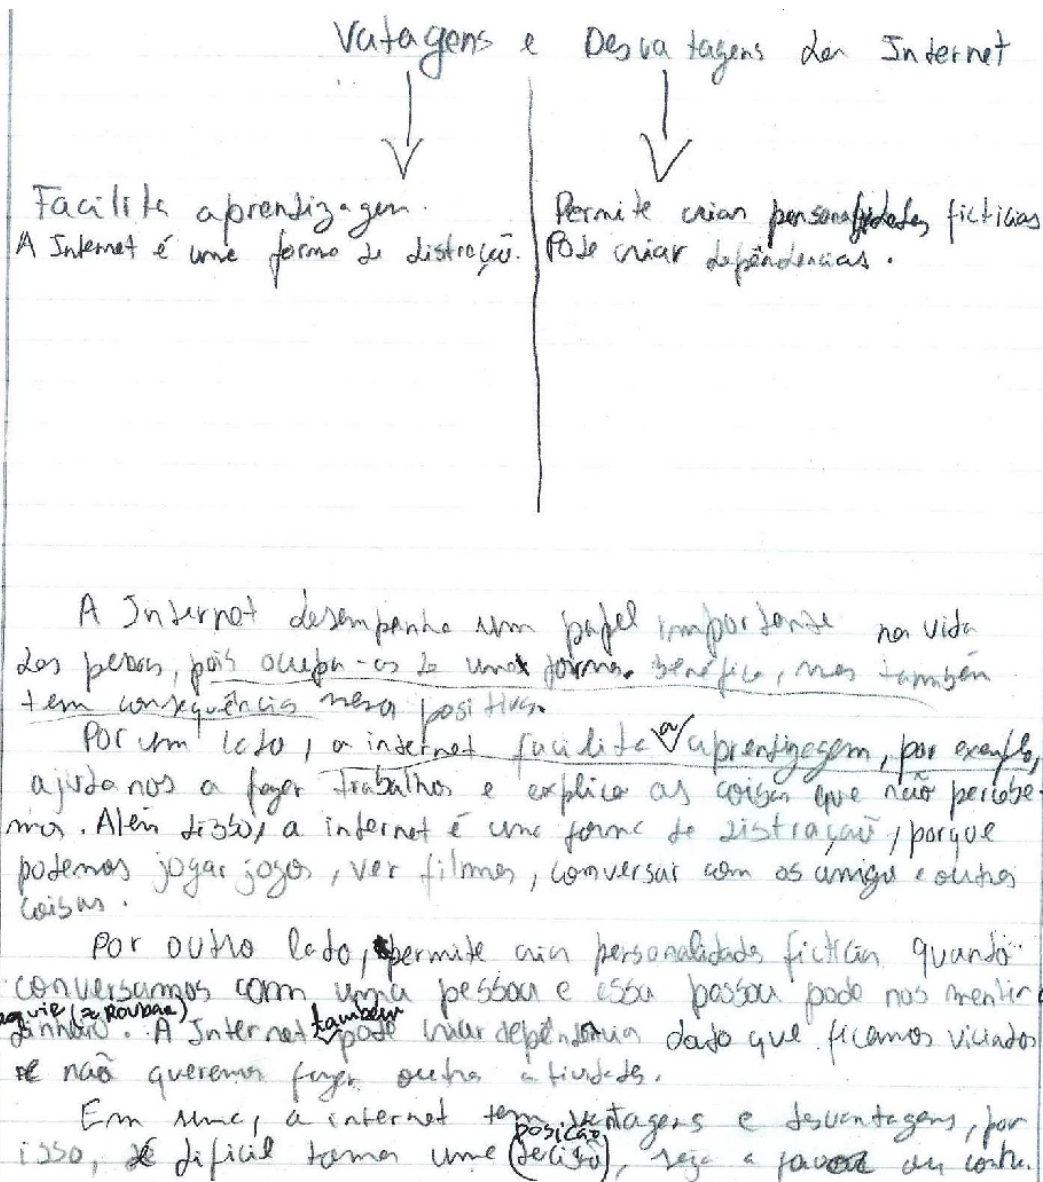 Vatagens e Desvatagens da Internet
Facilita aprendizagem.
A Internet é uma forma de distração.
Permite criar personalidades ficticias
Pode criar dependencias.
A Internet desempenha um papel importante na vida
das pessoas, pois ocupa-as de uma forma benéfica, mas também
tem consequências positivas.
Por um lado, a internet facilita a aprendizagem, por exemplo,
ajuda nos a fazer trabalhos e explica as coisas que não percebe-
mos. Além disso, a internet é uma forma de distração, porque
podemos jogar jogos, ver filmes, conversar com os amigos e outras
coisas.
Por outro lado, permite criar personalidades ficticias quando
conversamos com uma pessoa e essa passoa pode nos mentir
(Roubar)
dinheiro. A Internet também pode criar dependencia dado que ficamos viciados
e não queremos fazer outras atividades.
Em suma, a internet tem vantagens e desvantagens, por
isso, é dificil tomar uma posição (decisão), seja a favor ou contra.